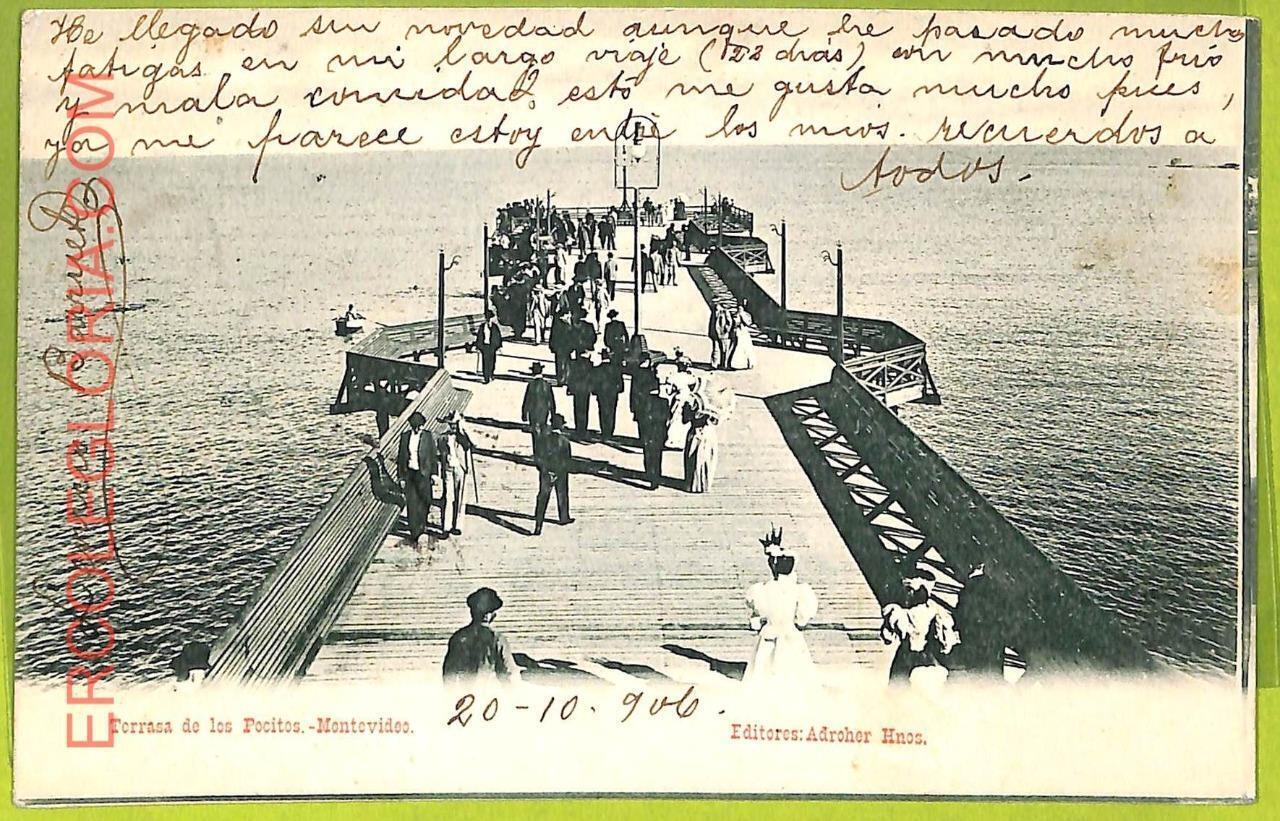 He llegado sin novedad aunque he pasado muchas
fatigas en mi largo viaje (22 dias) con mucho frio
y mala comida, esto me gusta mucho pues,
ya me parece estoy entre los mios. recuerdos a
todos.
ERCOLEGLORIA.COM
20-10-906.
Terrasa de los Pocitos.-Montevideo.
Editores: Adroher Hnos.